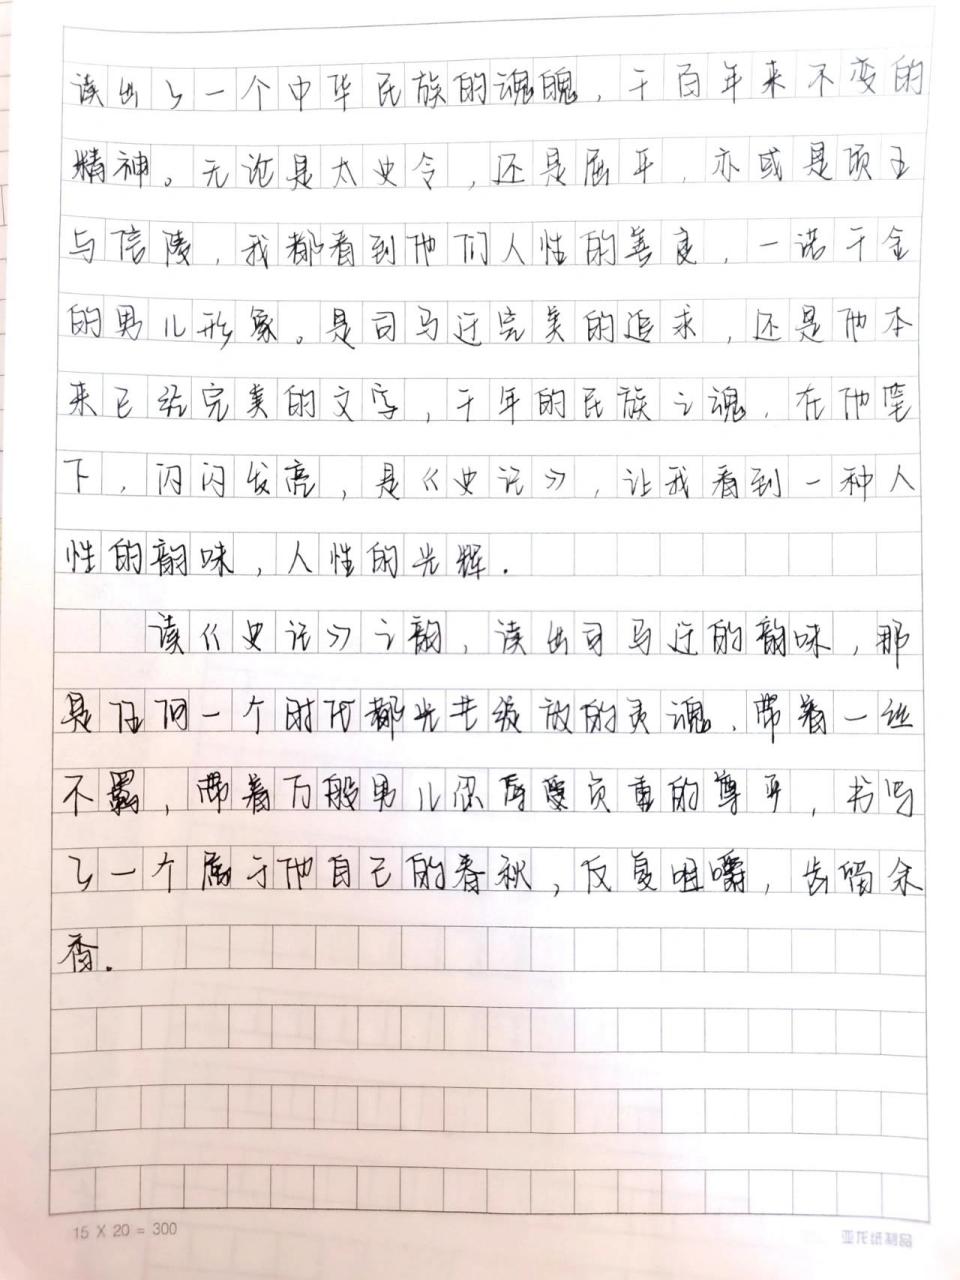 读出了一个中华民族的魂魄，千百年来不变的
精神。无论是太史令，还是屈平，亦或是项王
与信陵，我都看到他们人性的善良，一诺千金
的男儿形象。是司马迁完美的追求，还是他本
来已经完美的文字，千年的民族之魂，在他笔
下，闪闪发亮，是《史记》，让我看到一种人
性的韵味，人性的光辉.
读《史记》之韵，读出司马迁的韵味，那
是任何一个时代都光芒绽放的灵魂，带着一丝
不羁，带着万般男儿忍辱负重的尊严，书写
了一个属于他自己的春秋，反复咀嚼，齿留余
香.
15 X 20 = 300
亚龙纸制品